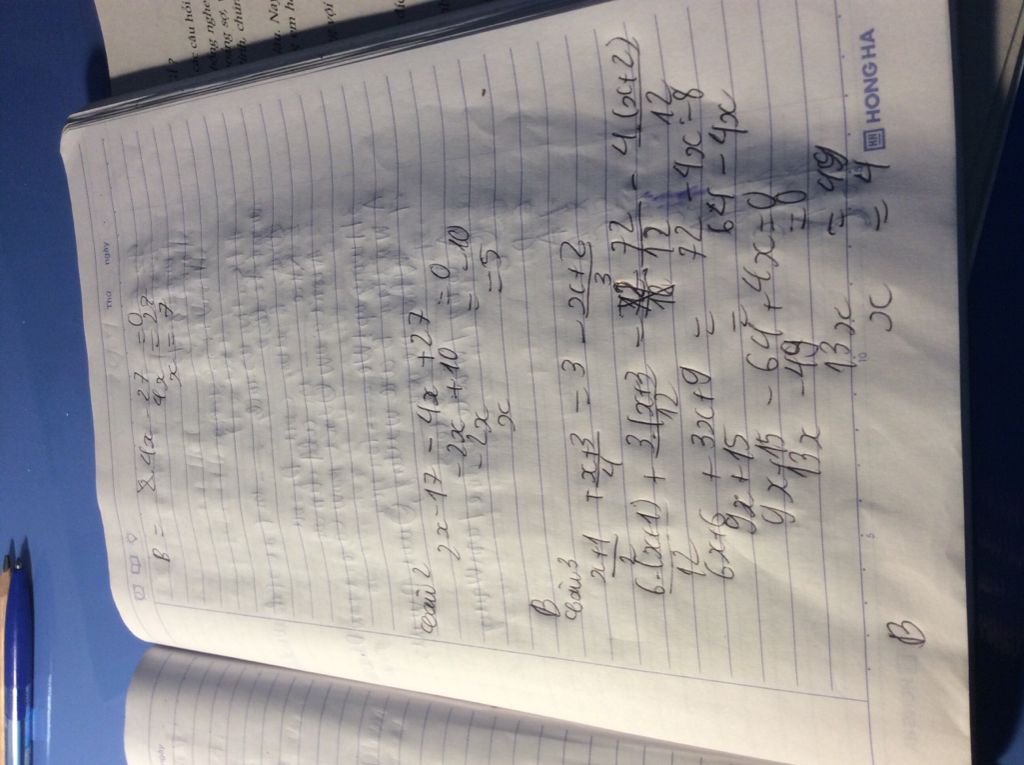 Thứ
ngày
B = 4x - 27 = 0
4x = 27
x = 7
Câu 2
2x - 17 - 4x + 27 = 0
-2x + 10 = 0
-2x = -10
x = 5
B
Câu 3
x+1/2 + x+3/4 = 3 - x+2/3
6.(x+1)/12 + 3.(x+3/12 = 72/12 - 4(x+2)/12
6x+6 + 3x+9 = 72 - 4x - 8
9x+15 = 64 - 4x
9x+15 - 64 + 4x = 0
13x - 49 = 0
13x = 49
x = 4
B
5
10
HONG HA
ngày
các câu hỏi